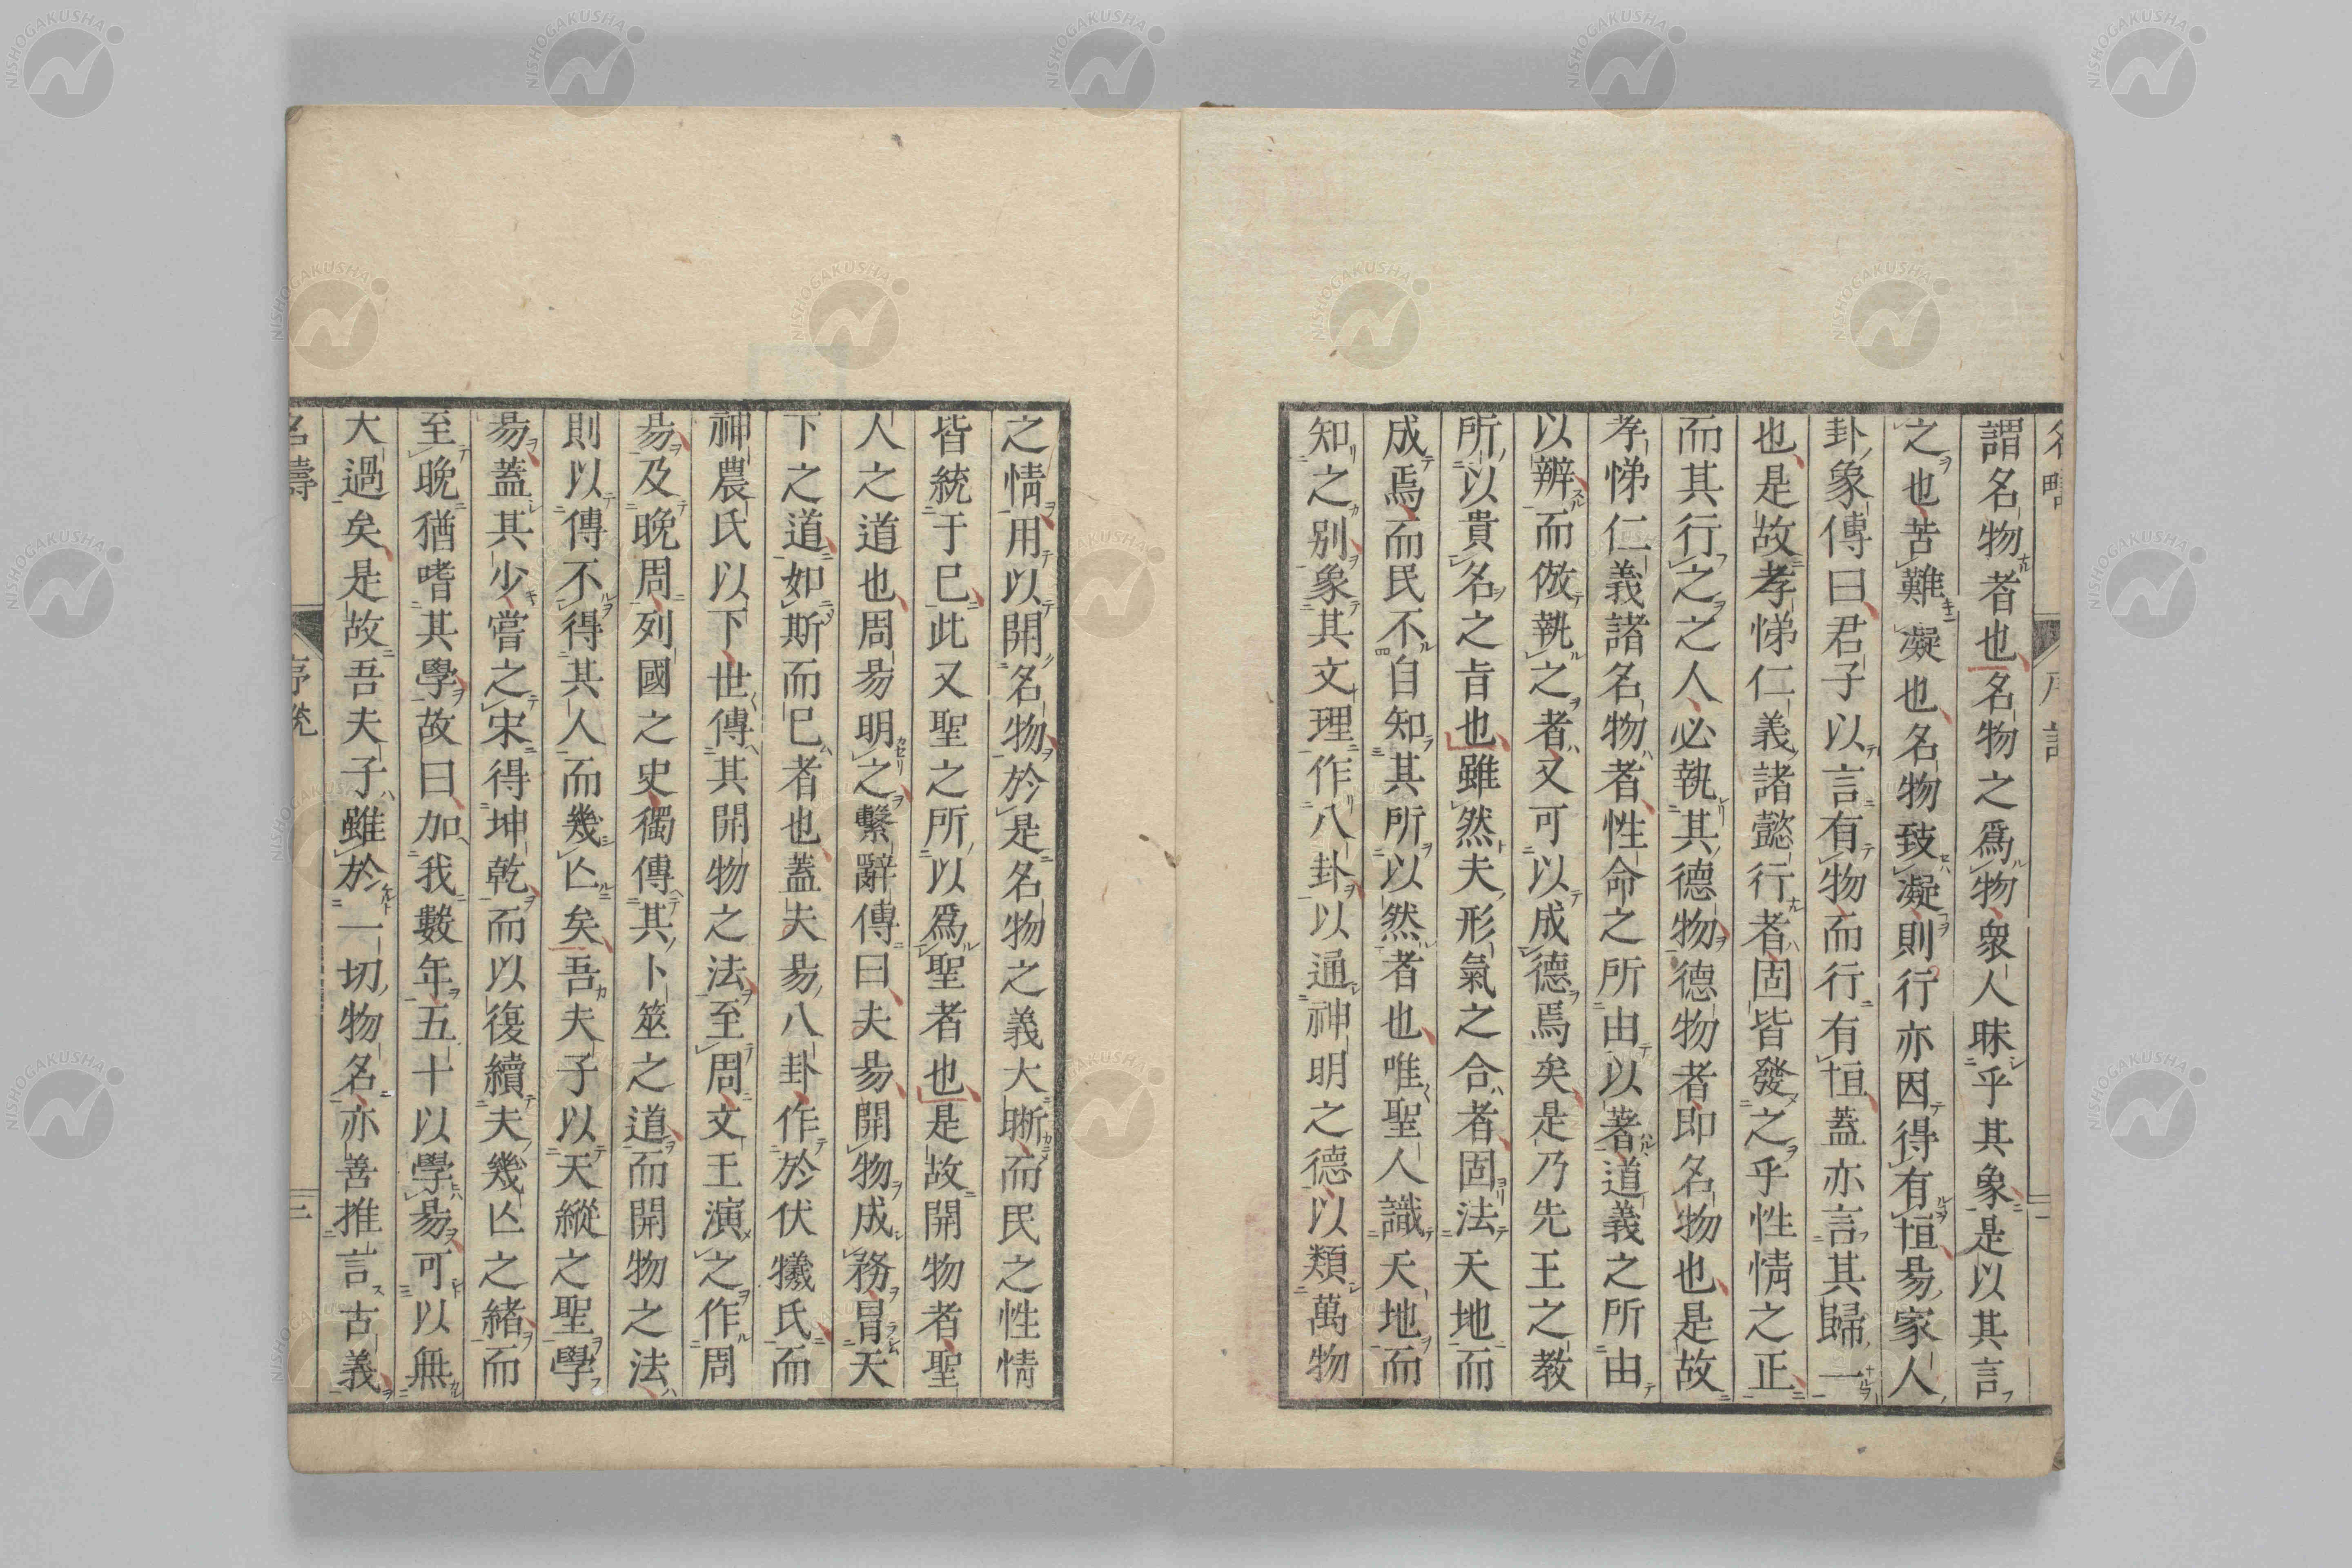 謂名物者也名物之爲物衆人昧乎其象是以其言
之也苦難凝也名物致凝則行亦因得有恒易家人
卦象傳曰君子以言有物而行有恒蓋亦言其歸一
也是故孝悌仁義諸懿行者固皆發之乎性情之正
而其行之之人必執其德物德物者即名物也是故
孝悌仁義諸名物者性命之所由以著道義之所由
以辨而倣執之者又可以成德焉矣是乃先王之教
所以貴名之旨也雖然夫形氣之合者固法天地而
成焉而民不自知其所以然者也唯聖人識天地而
知之別象其文理作八卦以通神明之德以類萬物
之情用以開名物於是名物之義大晰而民之性情
皆統于已此又聖之所以爲聖者也是故開物者聖
人之道也周易明之繫辭傳曰夫易開物成務冒天
下之道如斯而已者也蓋夫易八卦作於伏犧氏而
神農氏以下世傳其開物之法至周文王演之作周
易及晚周列國之史獨傳其卜筮之道而開物之法
則以傳不得其人而幾亾矣吾夫子以天縱之聖學
易蓋其少嘗之宋得坤乾而以復續夫幾亾之緒而
至晚猶嗜其學故曰加我數年五十以學易可以無
大過矣是故吾夫子雖於一切物名亦善推言古義
名疇
序說
三
NISHOGAKUSHA